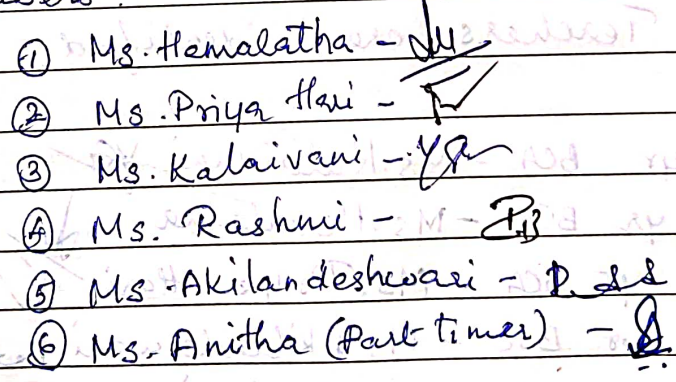 ① Ms. Hemalatha -
② Ms. Priya Hari -
③ Ms. Kalaivani -
④ Ms. Rashmi -
⑤ Ms. Akilandeshwari -
⑥ Ms. Anitha (Part Timer) -